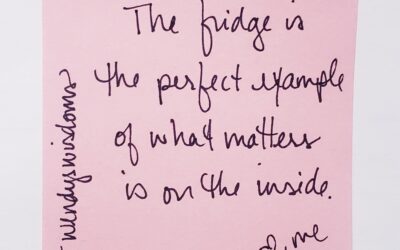 The fridge is
the perfect example
of what matters
is on the inside.
me
wendyswisdoms